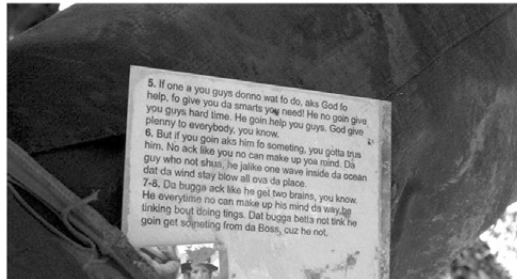 5. If one a you guys donno wat fo do, aks God fo
help, fo give you da smarts you need! He no goin give
you guys hard time. He goin help you guys. God give
plenny to everybody, you know.
6. But if you goin aks him fo someting, you gotta trus
him. No ack like you no can make up yoa mind. Da
guy who not shua, he jalike one wave inside da ocean
dat da wind stay blow all ova da place.
7-8. Da bugga ack like he get two brains, you know.
He everytime no can make up his mind da way he
tinking bout doing tings. Dat bugga betta not tink he
goin get someting from da Boss, cuz he not.